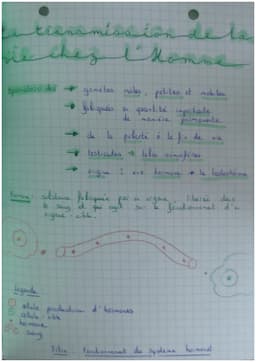 La transmission de la
vie chez l'Homme
Spermatozoïdes → gamètes mâles, petites et mobiles
→ fabriqués en quantité importante
de manière permanente
→ de la puberté à la fin de vie
→ testicules → tubes séminifères
→ origine : une hormone → la testostérone
Hormone : substance fabriquée par un organe, libérée dans
le sang et qui agit sur le fonctionnement d'un
organe-cible.
Légende
cellule productrice d'hormones
cellule-cible
hormone
sang
Titre : Fonctionnement du système hormonal